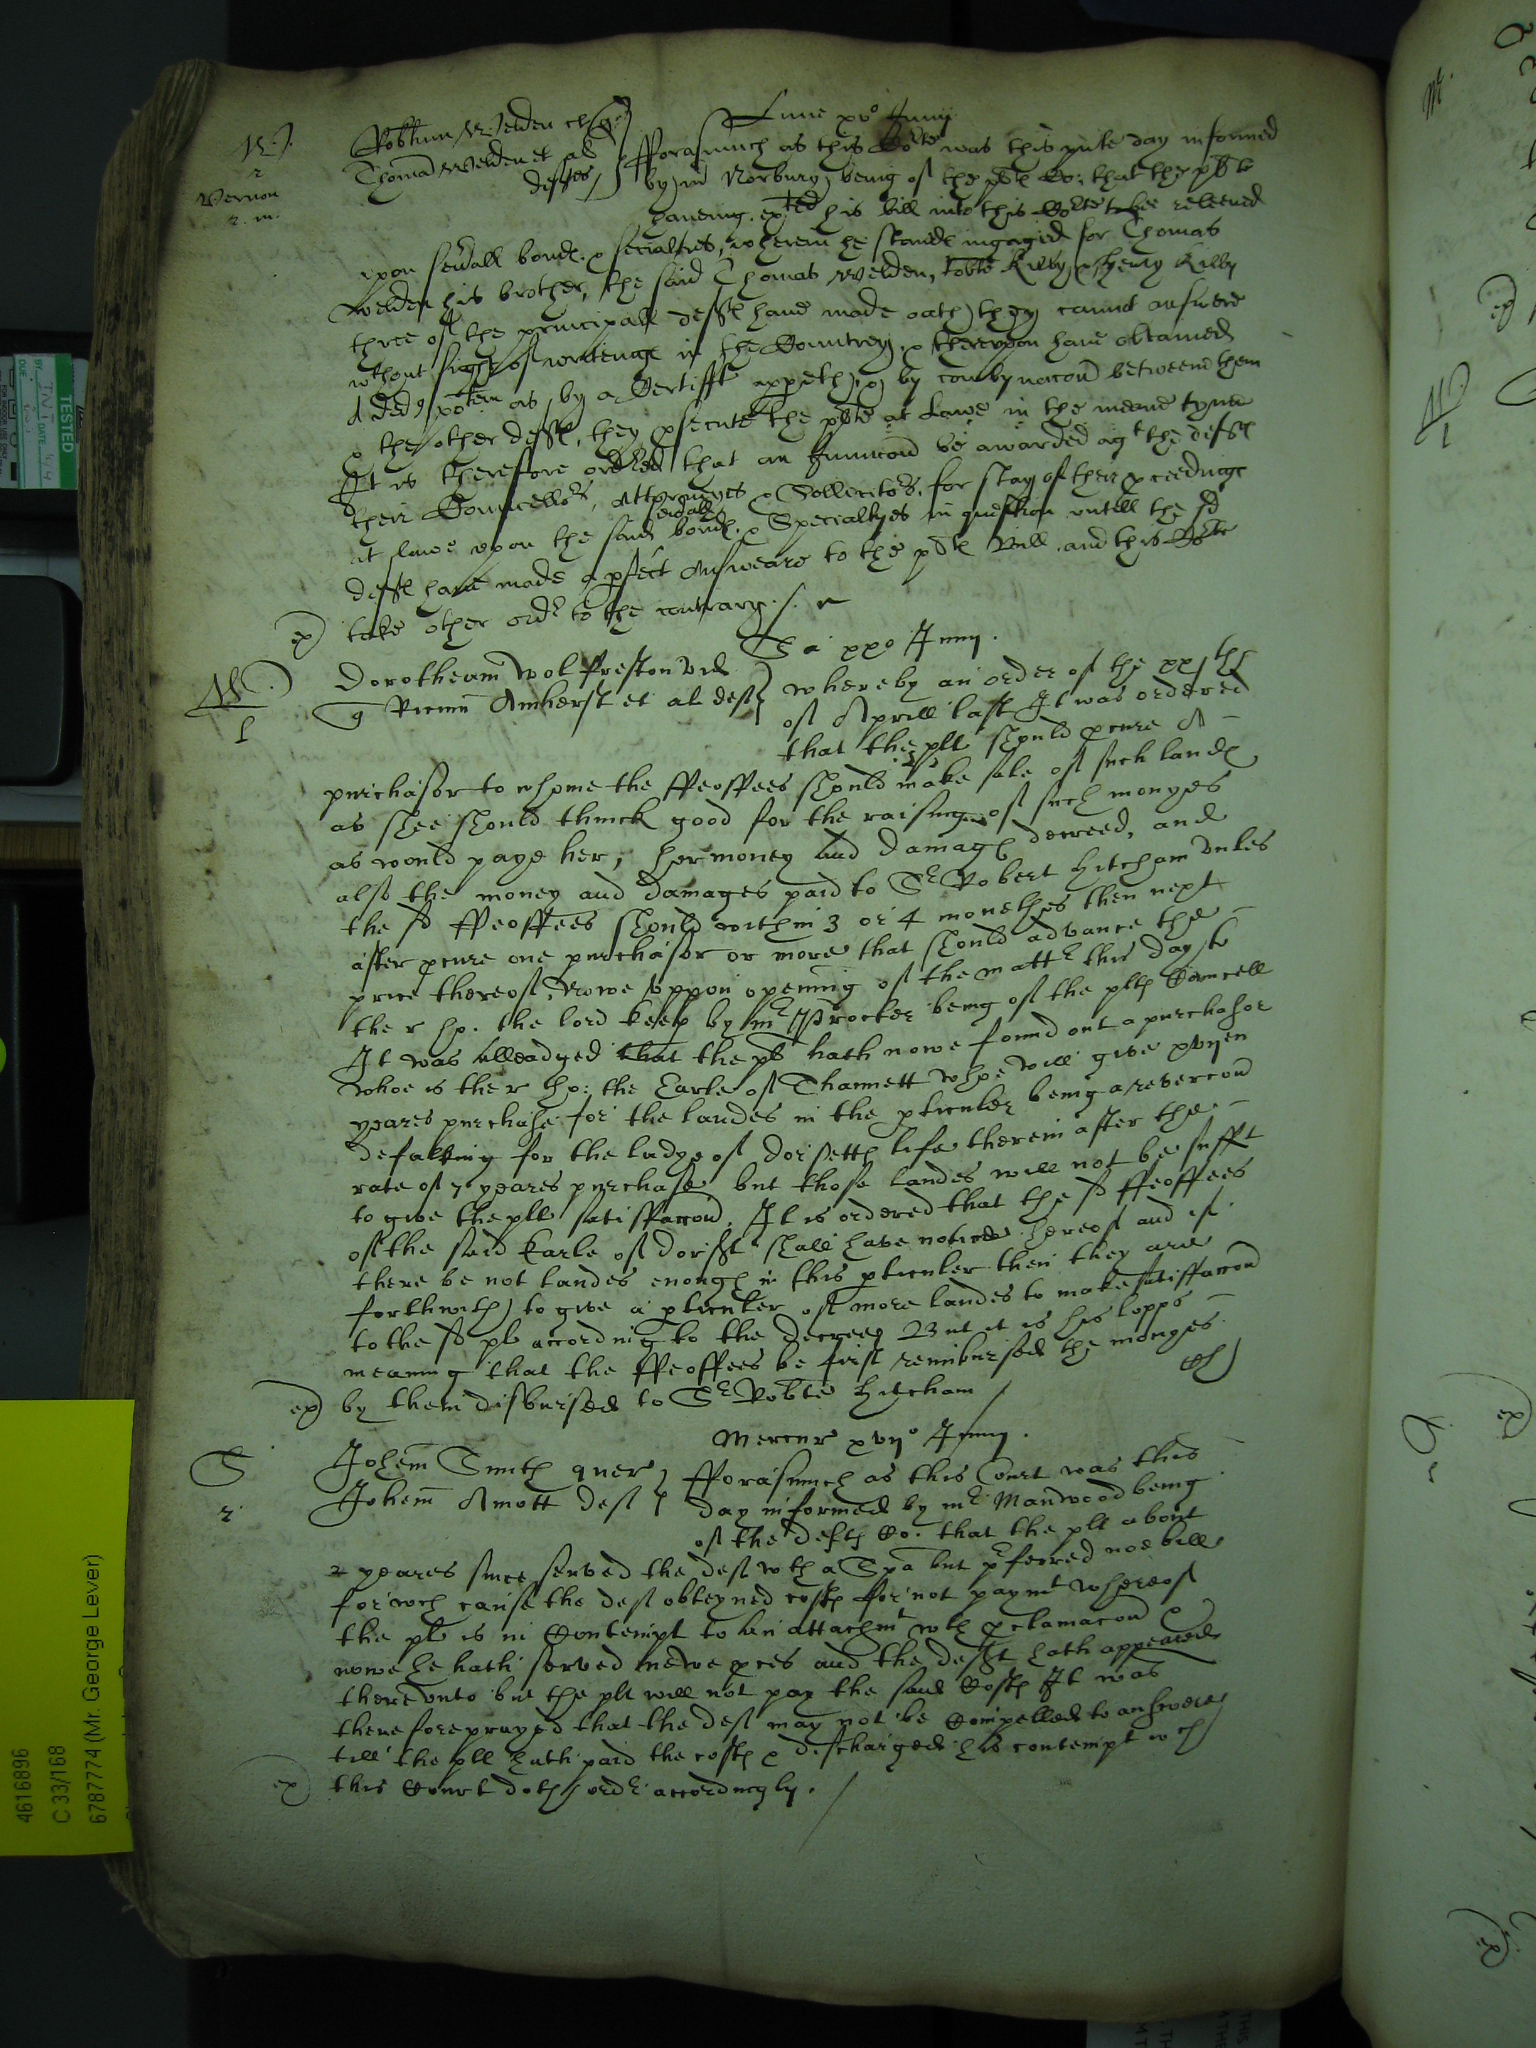 Lune xvo Junij
W.
2
Vernon
2. m.
Robtum Welden
Thomā Welden et al
deftes
fforasmuch as this Co:te was this pnte day informed
by mr Norbury being of the plts Co: that the plt
haveing his bill into this Co:te to bee releeved
upon sevrall bonds & specialties, wherein he stands ingaged for Thomas
Welden his brother, the said Thomas Welden, Robte Kilby & Henry Kilby
three of the principall defts have made oath they cannot answere
wthout sight of writinge in the Countrey, & thereupon have obtained
a Ded potem as by a Certifft appeth, & by combynacon betweene them
& the other defts, they psecute the plte at Lawe in the meane tyme
It is therefore ordred that an Iniunccon be awarded agt the defts
their Councellors, Attorneyes & Sollicitors, for stay of their pceedings
at lawe upon the said sevrall bonds & Specialtyes in question untill the sd
defts have made a pfect Answeare to the plts Bill and this Co:te
ex) take other ordr to the contrary.
Sa xxo Junij.
W.
1
Dorotheam Wolfreston vid
Amherst et al deft
whereby an order of the xxjth
of Aprill last It was ordered
that the plt should pcure A
purchasor to whome the ffeoffees should make sale of such lands
as shee should thinck good for the raising of such monyes
as would paye her, her money and damags decreed, and
also the money and damages paid to Sr Robert Hitcham unles
the sd ffeoffees should within 3 or 4 monethes then next
after pcure one purchasor or more that should advance the
price thereof, Nowe uppon opening of the mattr this day to
the r hp. the lord keep by mr Crocker being of the plts Councell
It was alleadged that the plt hath nowe found out a purchasor
whoe is the r hp: the Earle of Thannett whoe will give xvijen
yeares purchase for the landes in the pticuler being a revercon
defalking for the ladye of Dorsetts life therein after the
rate of 7 yeares purchase but those landes will not be sufft
to give the plt satisfaccon. It is ordered that the sd ffeoffees
of the said Earle of dorsst shall have notice hereof and if
there be not landes enough in this pticuler then they are
forthwith to give a pticuler of more landes to make satisfaccon
to the sd plt according to the decree, But it is his lopps
meaning that the ffeoffees be first reimbursed the monyes
ex) by them disbursed to Sr Robte Hitcham
Mercur xvijo Junij.
S
2
Johem Smith quer
Johem Amott deft
fforasmuch as this Court was this
day informed by mr Manwood being
of the defts Co. that the plt about
2 yeares since served the deft wth a Spa but pferred noe bill
for wch cause the deft obteyned costs for not paymt whereof
the plt is in Contempt to an attachmt wth pclamacon &
nowe he hath served newe pces and the deft hath appeared
thereunto but the plt will not pay the said Costs It was
therefore prayed that the deft may not be Compelled to answere
till the plt hath paid the costs & discharged his contempt wch
ex) this Court doth ordr accordingly.
TESTED
4616896
C 33/168
6787774 (Mr. George Lever)